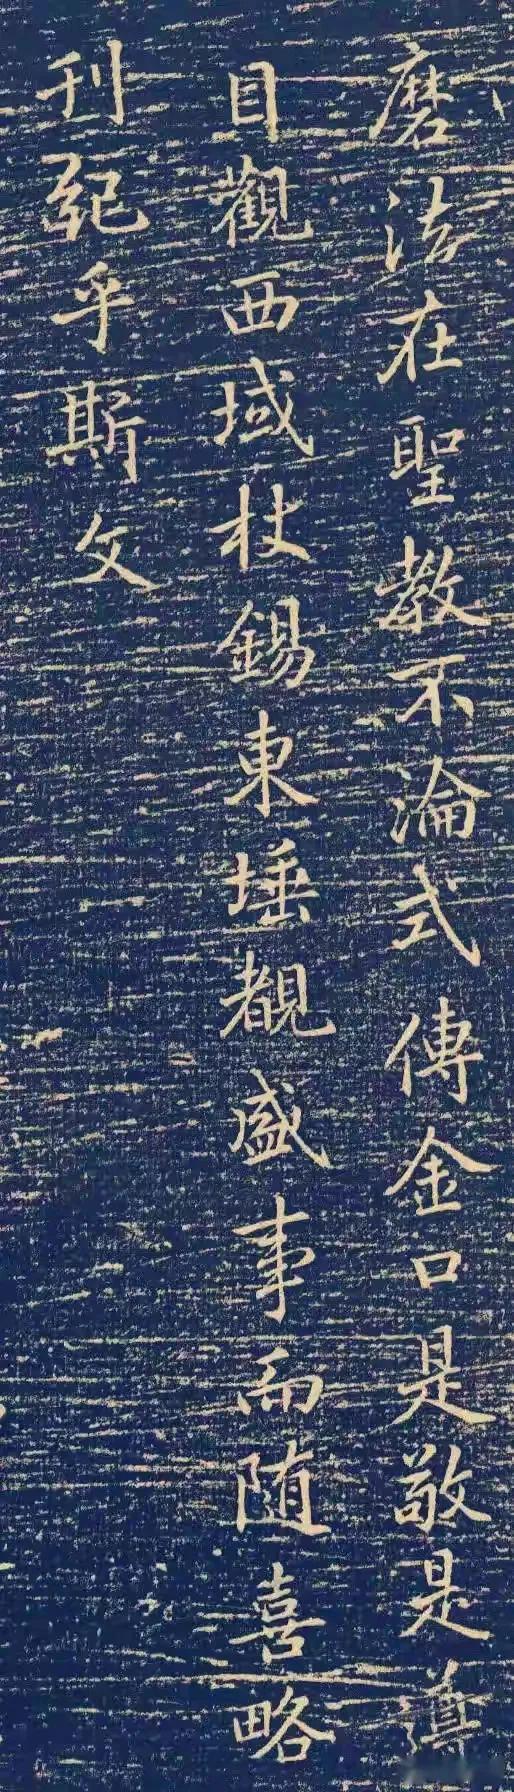 磨法在聖教不淪式傳金口是敬是
目觀西域杖錫東埵覩盛事而随喜略
刊紀乎斯文